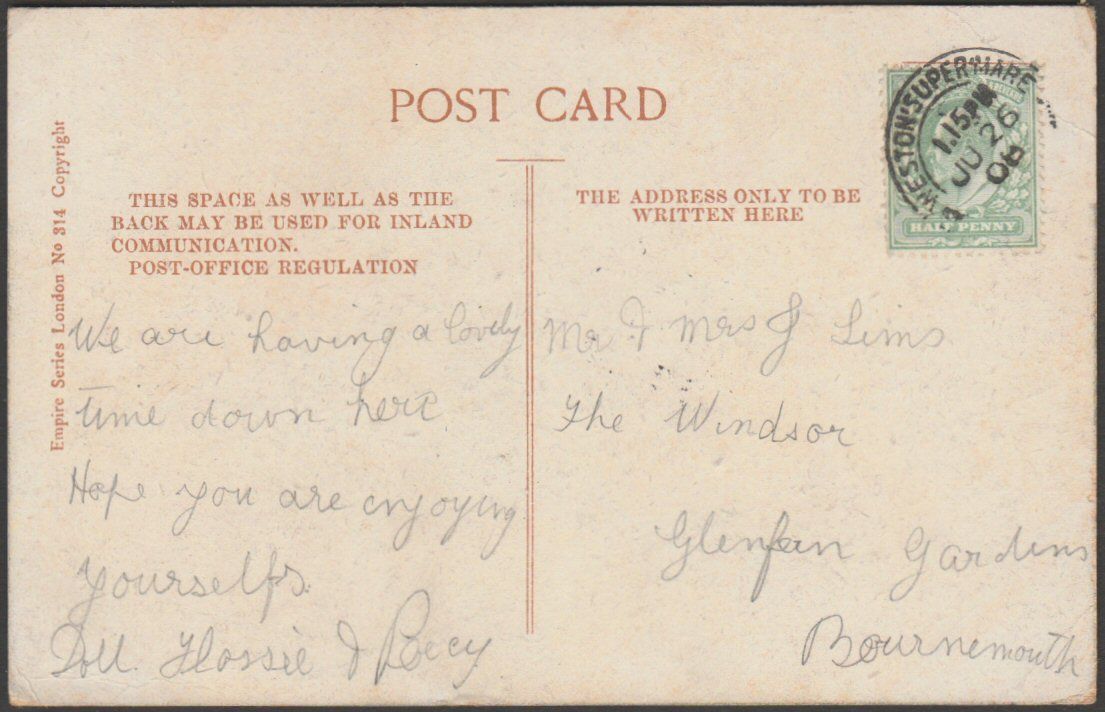 POST CARD
THIS SPACE AS WELL AS THE
BACK MAY BE USED FOR INLAND
COMMUNICATION.
POST-OFFICE REGULATION
THE ADDRESS ONLY TO BE
WRITTEN HERE
WESTON-SUPER-MARE
1.15PM
JU 26
06
HALF PENNY
Empire Series London No 314 Copyright
We are having a lovely
time down here
Hope you are enjoying
yourselfs.
Doll. Flossie & Reecy
Mr & Mrs J Sims
The Windsor
Glenfern Gardens
Bournemouth